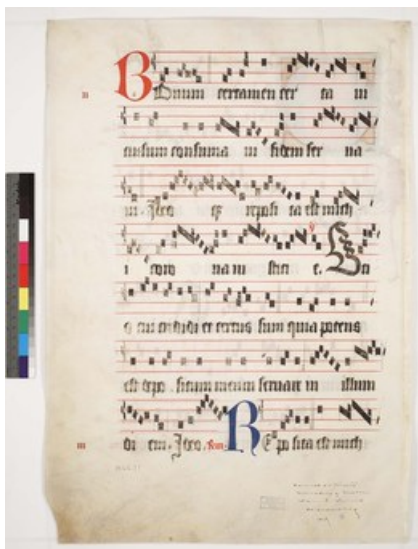 BOnum certamen cer ta ui
cursum consuma ui fidem ser ua
ui. Ideo reposi ta est mich
i coro na iusti ci e. Sci
o cui credidi et certus sum quia potens
est depo situm meum seruare in illum
di em. Ideo. REpo sita est mich